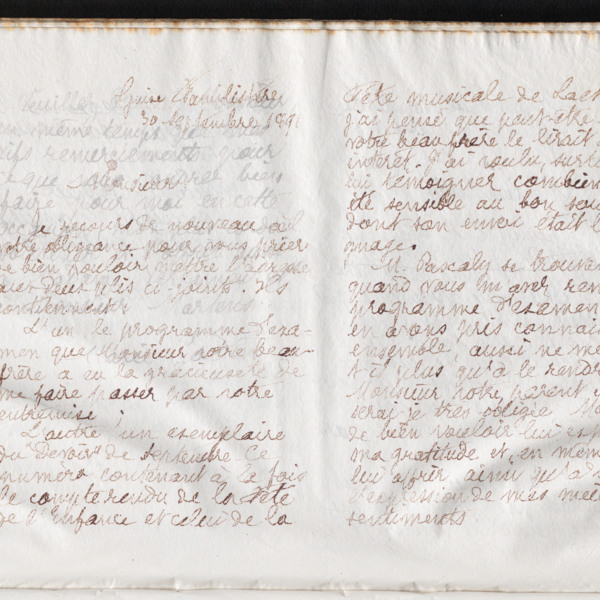 Guise Familistère
30 Septembre 1891
Monsieur
Je recours de nouveau à
votre obligeance pour vous prier
de bien vouloir mettre l'adresse
aux deux plis ci-joints. Ils
contiennent
L'un le programme d'exa-
men que Monsieur votre beau-
frère a eu la gracieuseté de
me faire passer par votre
entremise ;
L'autre un exemplaire
du Devoir de Septembre ce
numéro contenant à la fois
le compte rendu de la fête
de l'Enfance et celui de la
Fête musicale de Laeк
j'ai pensé que peut-être
votre beau frère le lirait
intérêt. J'ai voulu, surto
lui témoigner combien
été sensible au bon sou
dont son envoi était l
gnage.
M. Pascaly se trouva
quand vous m'avez rem
programme d'examen
en avons pris connais
ensemble, aussi ne me
t-il plus qu'à le rendre
Monsieur votre parent,
serai-je très obligée Mo
de bien vouloir lui exp
ma gratitude et, en mêm
lui offrir, ainsi qu'à
l'expression de mes mei
sentiments